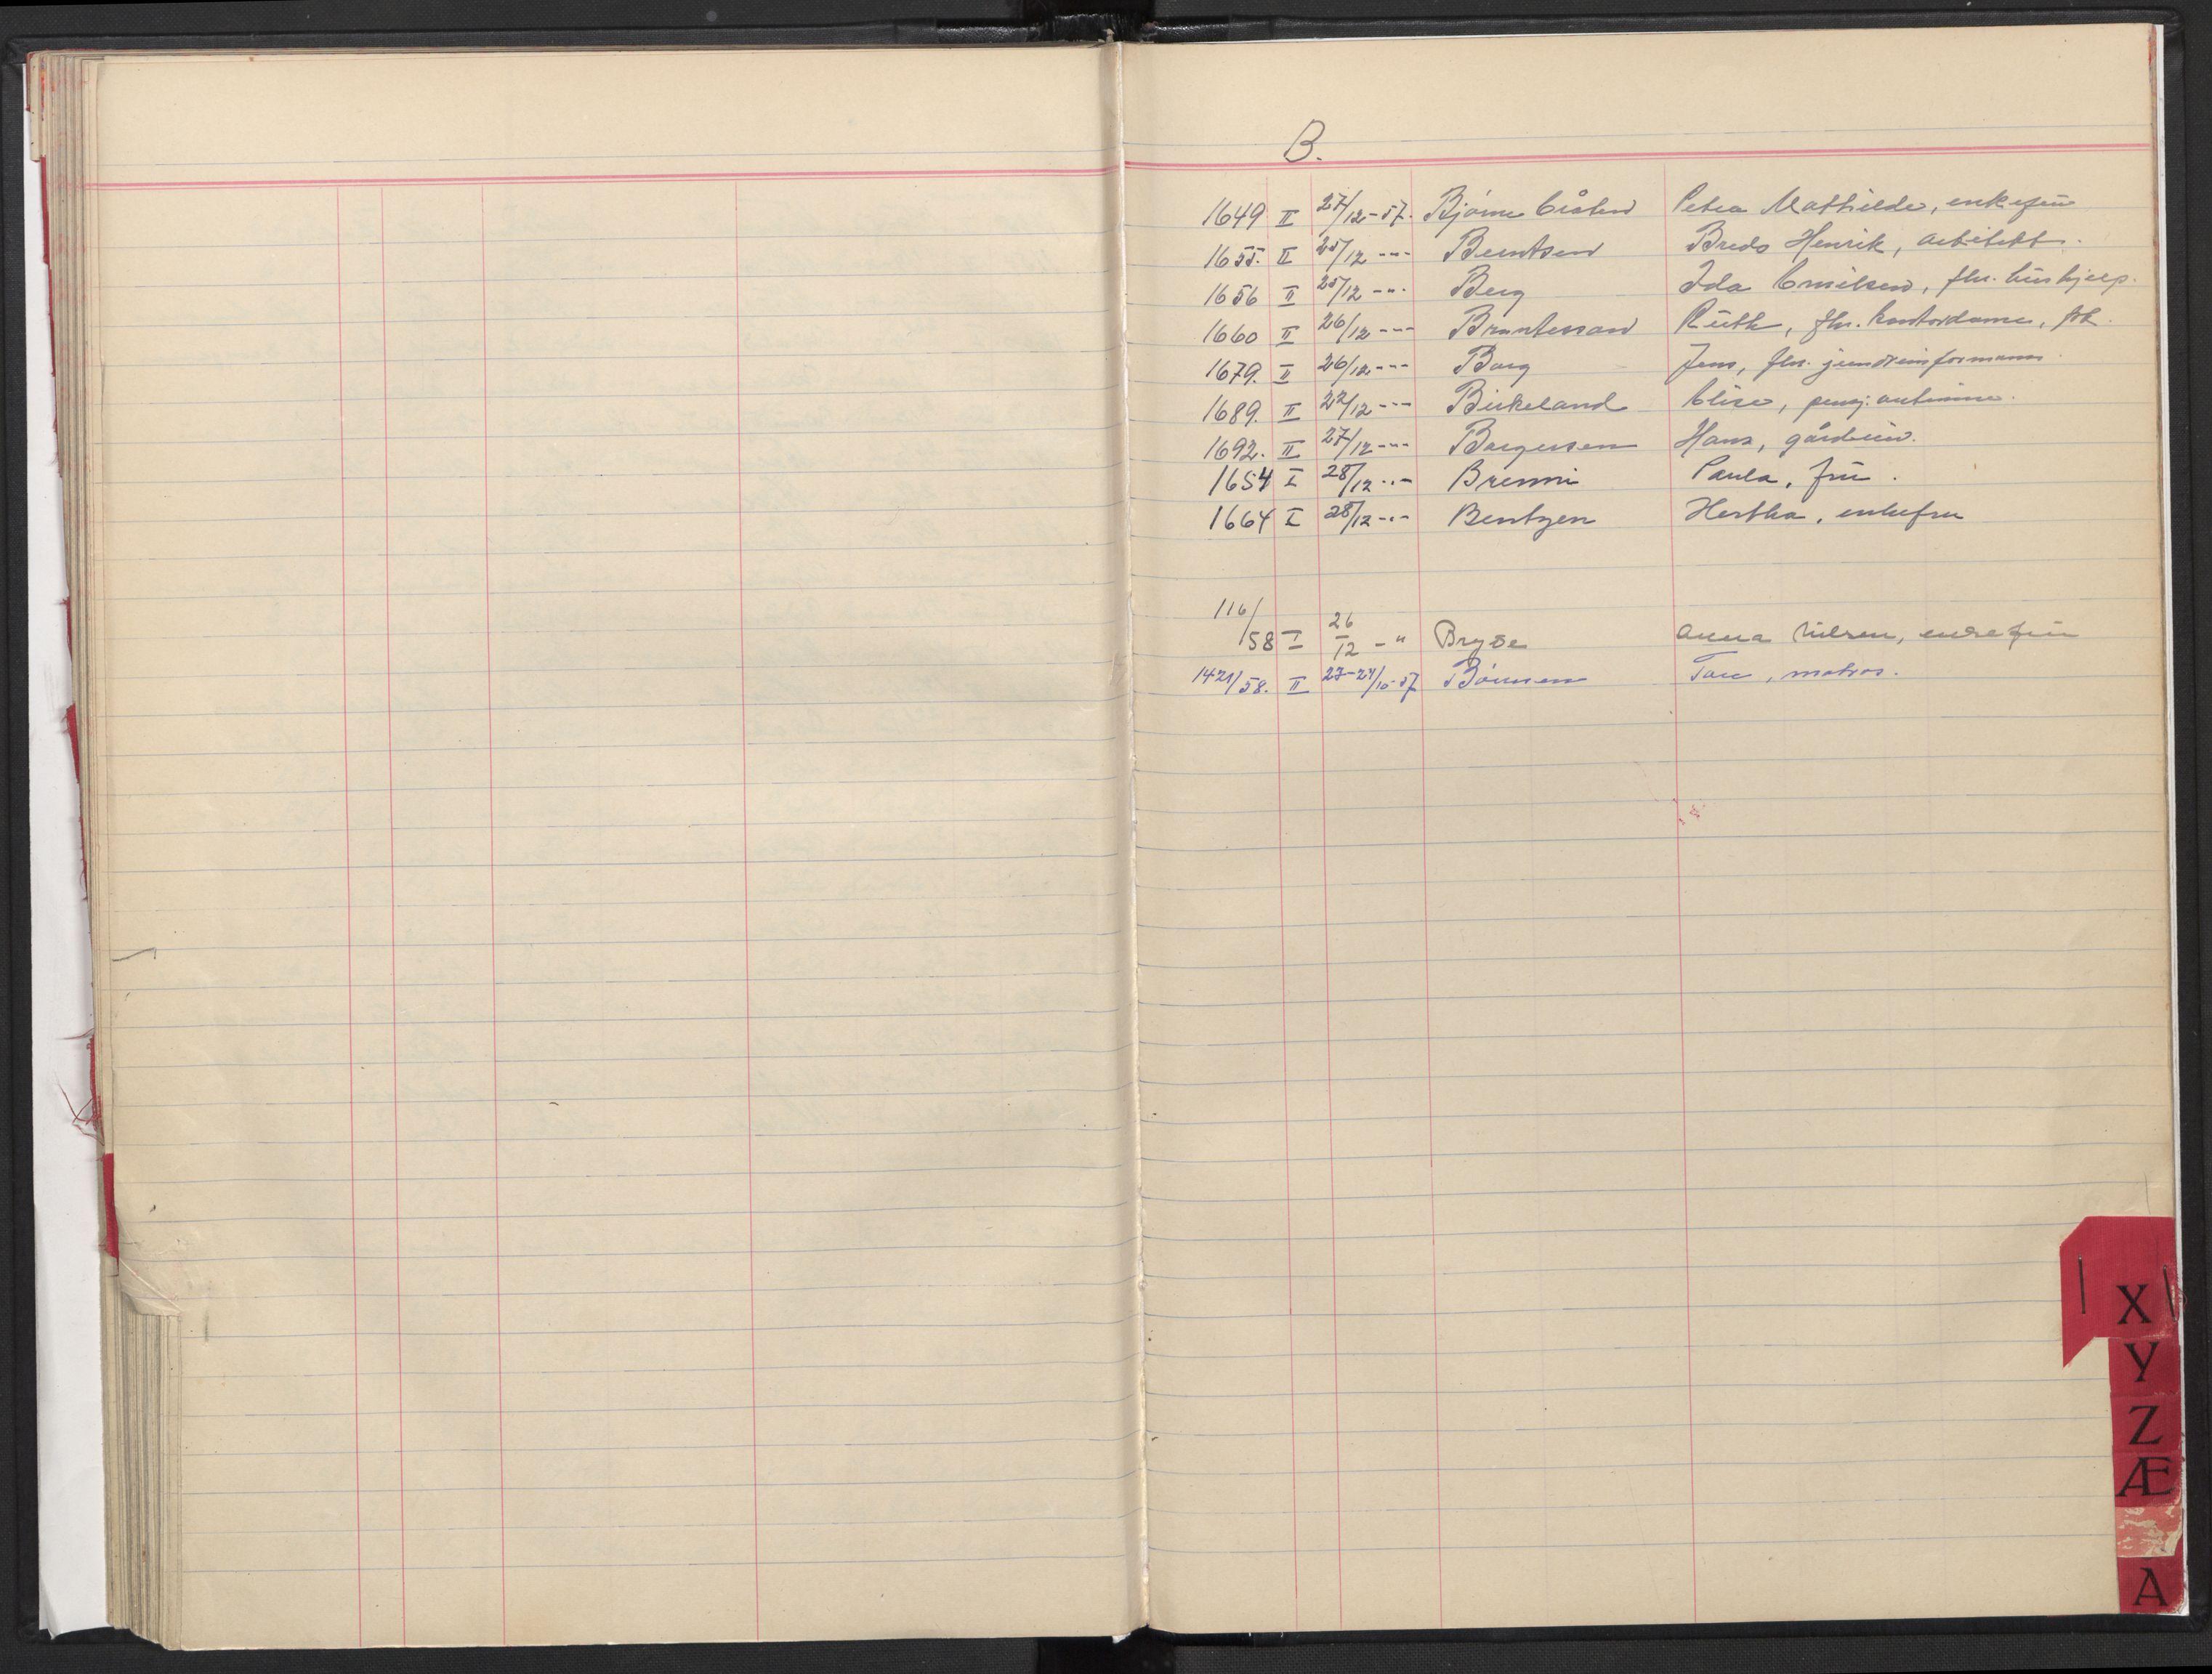 B.
1649 II 27/12-57. Petra Mathilde, enkefru
1655. II 25/12 -"- Berntsen Henrik,
1656 II 25/12 -"- Berg Ida Emilsen, fhv. hushjelp.
1660 II 26/12 -"- Ruth, fhv. kontordame, frk.
1679. II 26/12 -"- Borg Jens, fhv.
1689. II 22/12 -"- Birkeland Elise,
1692. II 27/12 -"- Borgersen Hans,
1654 I 28/12 -"- Paula, fru.
1664 I 28/12 -"- Bentzen Hertha, enkefru
116/58 I 26/12 - " Bryde Anna Nilsen, enkefru
1421/58. II 23-24/10-57 matros.
X
Y
Z
Æ
A